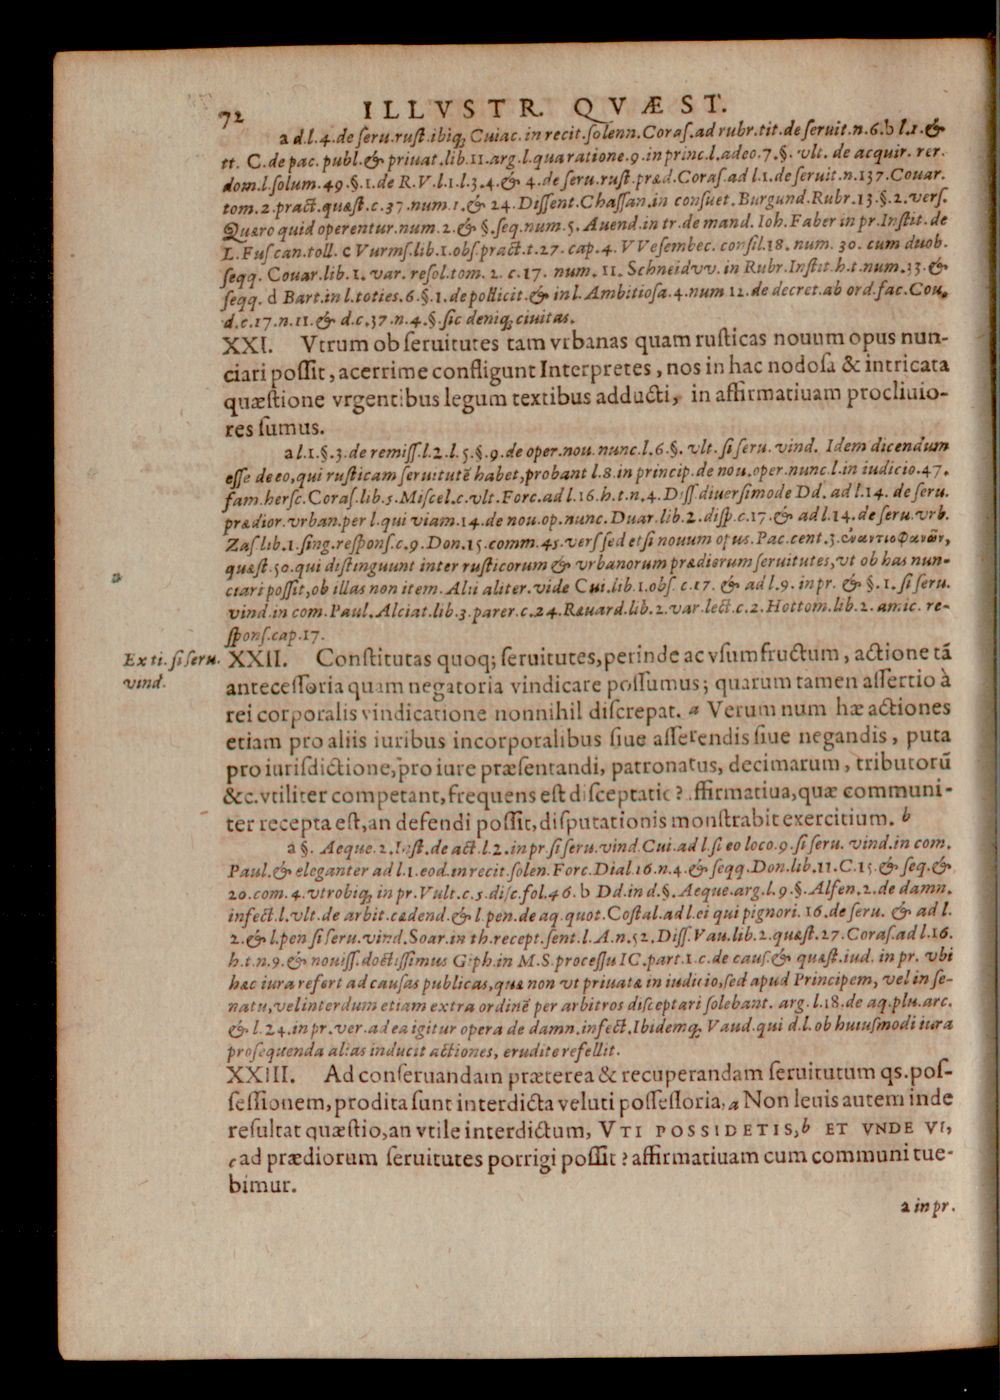 72 ILLVSTR. QVÆST.
a d.l.4.de ſeru.ruſt.ibiq; Cuiac. in recit.ſolenn.Coraſ.ad rubr.tit.de ſeruit.n.6.b l.1.&
tt. C.de pac. publ.& priuat.lib.11.arg.l.qua ratione.9.in princ.l.adeo.7.§. vlt. de acquir. rer.
dom.l.ſolum.49.§.1.de R.V.l.1.l.3.4.& 4.de ſeru.ruſt.præd.Coraſ.ad l.1.de ſeruit.n.137.Couar.
tom.2.pract.quæſt.c.37.num.1.& 24.Diſſent.Chaſſan.in conſuet.Burgund.Rubr.13.§.2.verſ.
Quæro quid operentur.num.2.& §.ſeq.num.5.Auend.in tr.de mand. Ioh.Faber in pr.Inſtit.de
L.Fuſ can.toll. c Vurmſ.lib.1.obſ.pract.t.27. cap.4. VVeſembec. conſil.18. num. 30. cum duob.
ſeqq. Couar.lib.1. var. reſol.tom. 2. c.17. num. 11. Schneidvv. in Rubr.Inſtit.h.t.num.33.&
ſeqq. d Bart.in l.toties.6.§.1.de pollicit.& in l. Ambitioſa.4.num 12.de decret.ab ord.fac.Cou.
d.c.17.n.11.& d.c.37.n.4.§.ſic deniq; ciuitas.
XXI. Vtrum ob ſeruitutes tam vrbanas quam ruſticas nouum opus nun-
ciari poſſit, acerrime confligunt Interpretes, nos in hac nodoſa & intricata
quæſtione vrgentibus legum textibus adducti, in affirmatiuam procliuio-
res ſumus.
a l.1.§.3.de remiſſ.l.2.l.5.§.9.de oper.nou.nunc.l.6.§. vlt.ſi ſeru. vind. Idem dicendum
eſſe de eo, qui ruſticam ſeruitutē habet, probant l.8.in princip.de nou.oper.nunc.l.in iudicio.47.
fam.herſc.Coraſ.lib.5.Miſcel.c.vlt.Forc.ad l.16.h.t.n.4.Diſſ.diuerſimode Dd. ad l.14. de ſeru.
prædior.vrban.per l.qui viam.14.de nou.op.nunc.Duar.lib.2.diſp.c.17.& ad l.14.de ſeru.vrb.
Zaſ.lib.1.ſing.reſponſ.c.9.Don.15.comm.45.verſ ſed etſi nouum opus.Pac.cent.3.ἐναντιοφανῶν,
quæſt.50.qui diſtinguunt inter ruſticorum & vrbanorum prædiorum ſeruitutes, vt ob has nun-
ciari poſſit, ob illas non item. Alii aliter.vide Cui.lib.1.obſ. c.17. & ad l.9. in pr. & §.1.ſi ſeru.
vind.in com.Paul.Alciat.lib.3.parer.c.24.Ræuard.lib.2.var.lect.c.2.Hottom.lib.2.amic. re-
ſponſ.cap.17.
Ex ti.ſi ſeru.
vind.
XXII. Conſtitutas quoq; ſeruitutes, perinde ac vſumfructum, actione tā
anteceſſoria quam negatoria vindicare poſſumus; quarum tamen aſſertio à
rei corporalis vindicatione nonnihil diſcrepat. a Verum num hæ actiones
etiam pro aliis iuribus incorporalibus ſiue aſſerendis ſiue negandis, puta
pro iurisdictione, pro iure præſentandi, patronatus, decimarum, tributorū
&c. vtiliter competant, frequens eſt diſceptatio? ffirmatiua, quæ communi-
ter recepta eſt, an defendi poſſit, diſputationis monſtrabit exercitium. b
a §. Aeque.2.Inſt.de act.l.2.in pr.ſi ſeru.vind.Cui.ad l.ſi eo loco.9.ſi ſeru. vind.in com.
Paul.& eleganter ad l.1.eod.in recit.ſolen.Forc.Dial.16.n.4.& ſeqq.Don.lib.11.C.15.& ſeq.&
20.com.4.vtrobiq; in pr.Vult.c.5.diſc.fol.46. b Dd.in d.§.Aeque.arg.l.9.§.Alfen.2.de damn.
infect.l.vlt.de arbit.cædend.& l.pen.de aq.quot.Coſtal.ad l.ei qui pignori.16.de ſeru. & ad l.
2.& l.pen ſi ſeru.vind.Soar.in th.recept.ſent.l.A.n.52.Diſſ.Vau.lib.2.quæſt.27.Coraſ.ad l.16.
h.t.n.9.& nouiſſ.doctiſſimus Giph.in M.S.proceſſu IC.part.1.c.de cauſ.& quæſt.iud. in pr. vbi
hæc iura refert ad cauſas publicas, quæ non vt priuatæ in iudicio, ſed apud Principem, vel in ſe-
natu, vel interdum etiam extra ordinē per arbitros diſceptari ſolebant. arg.l.18.de aq.plu.arc.
& l.24.in pr.ver.ad ea igitur opera de damn.infect.Ibidemq; Vaud.qui d.l.ob huiuſmodi iura
proſequenda alias inducit actiones, erudite refellit.
XXIII. Ad conſeruandam præterea & recuperandam ſeruitutum qs. poſ-
ſeſſionem, prodita ſunt interdicta veluti poſſeſſoria. a Non leuis autem inde
reſultat quæſtio, an vtile interdictum, VTI POSSIDETIS, b ET VNDE VI,
c ad prædiorum ſeruitutes porrigi poſſit? affirmatiuam cum communi tue-
bimur.
a in pr.